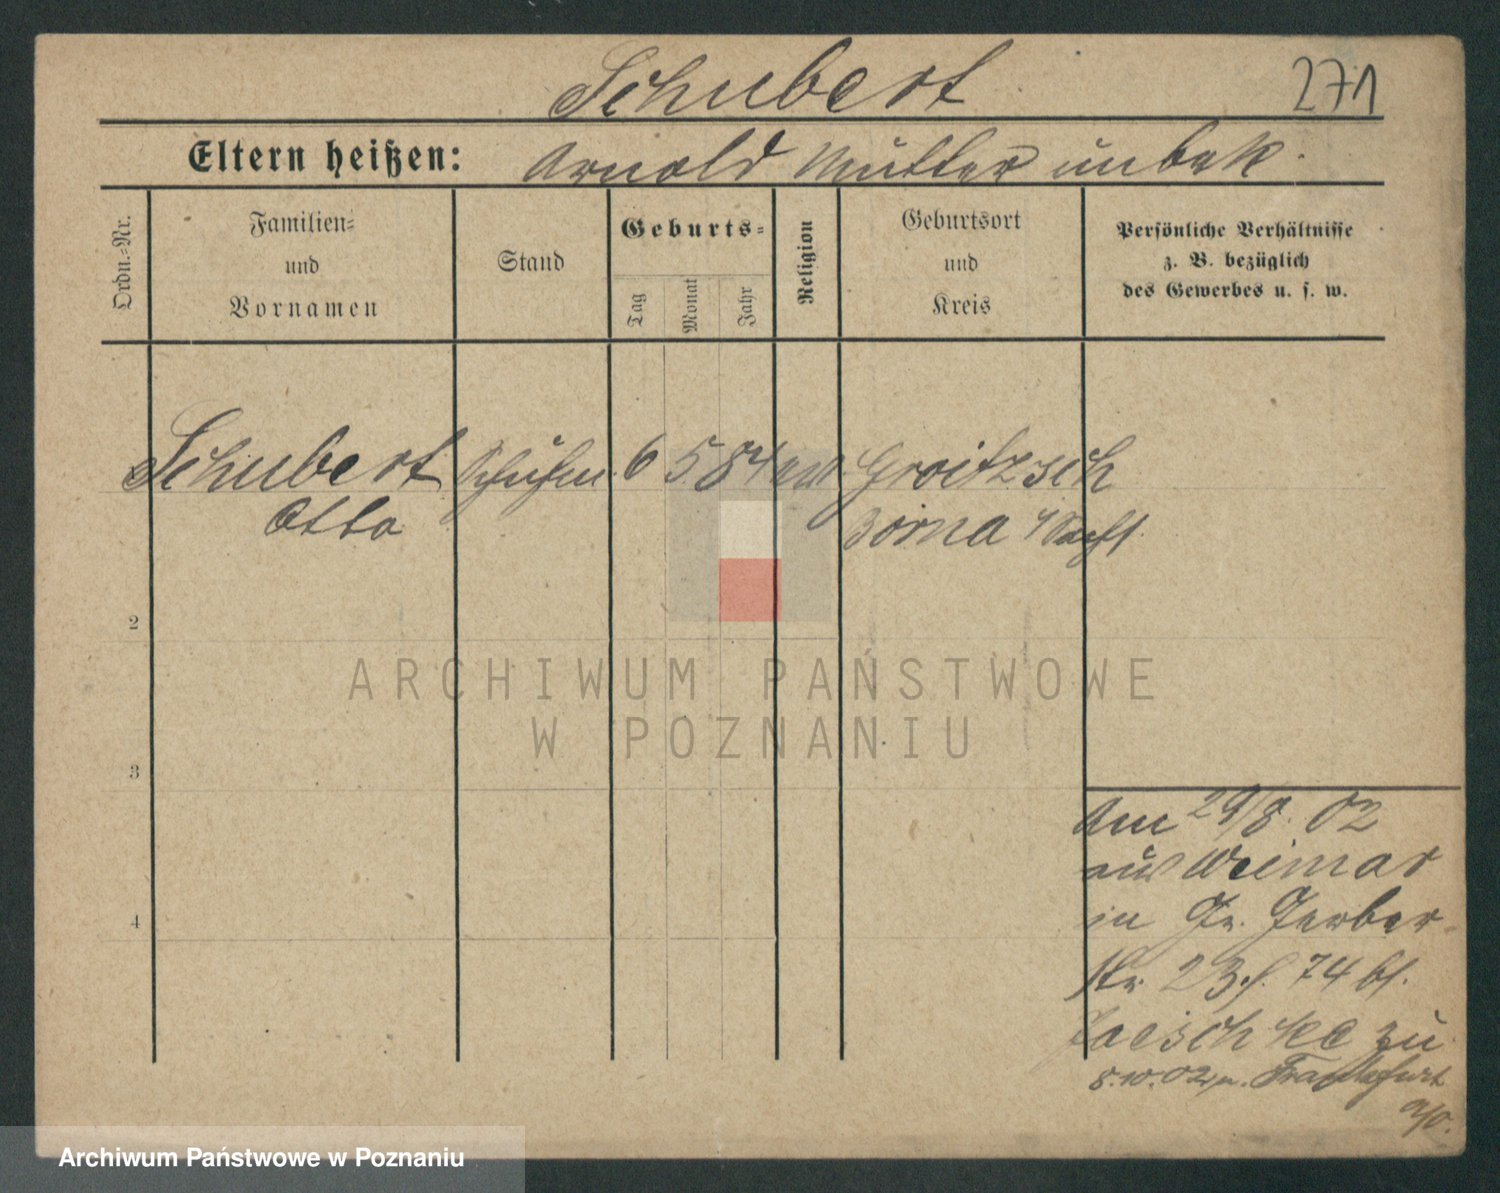 Schubert
271
Eltern heißen: Arnold Mutter unbek.
Ordn.-Nr.
Familien-
und
Vornamen
Stand
Geburts-
Tag
Monat
Jahr
Religion
Geburtsort
und
Kreis
Persönliche Verhältnisse
z. B. bezüglich
des Gewerbes u. s. w.
Schubert 6 5 84 Groitzsch
Otto Borna
2
3
4
ARCHIWUM PAŃSTWOWE
W POZNANIU
Am 29/8. 02
aus Weimar
in Gr. Gerber-
str. 23. 74 bt.
Jaeschke zu
8.10.02, n. Frankfurt
a/O.
Archiwum Państwowe w Poznaniu